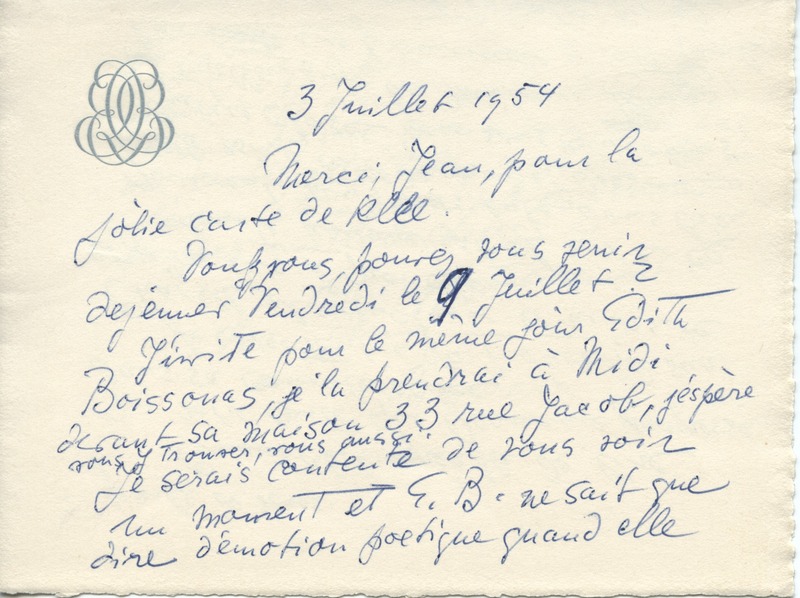 3 Juillet 1954
Merci, Jean, pour la
jolie carte de
vous, pouvez vous venir
dejeuner Vendredi le 9 Juillet ?
J'invite pour le même jour Edith
Boissonas, je la prendrai à Midi
devant sa maison 33 rue Jacob, j'éspère
vous y trouver, vous aussi.
Je serais contente de vous voir
un moment et E. B. ne sait que
dire d'émotion poetique quand elle